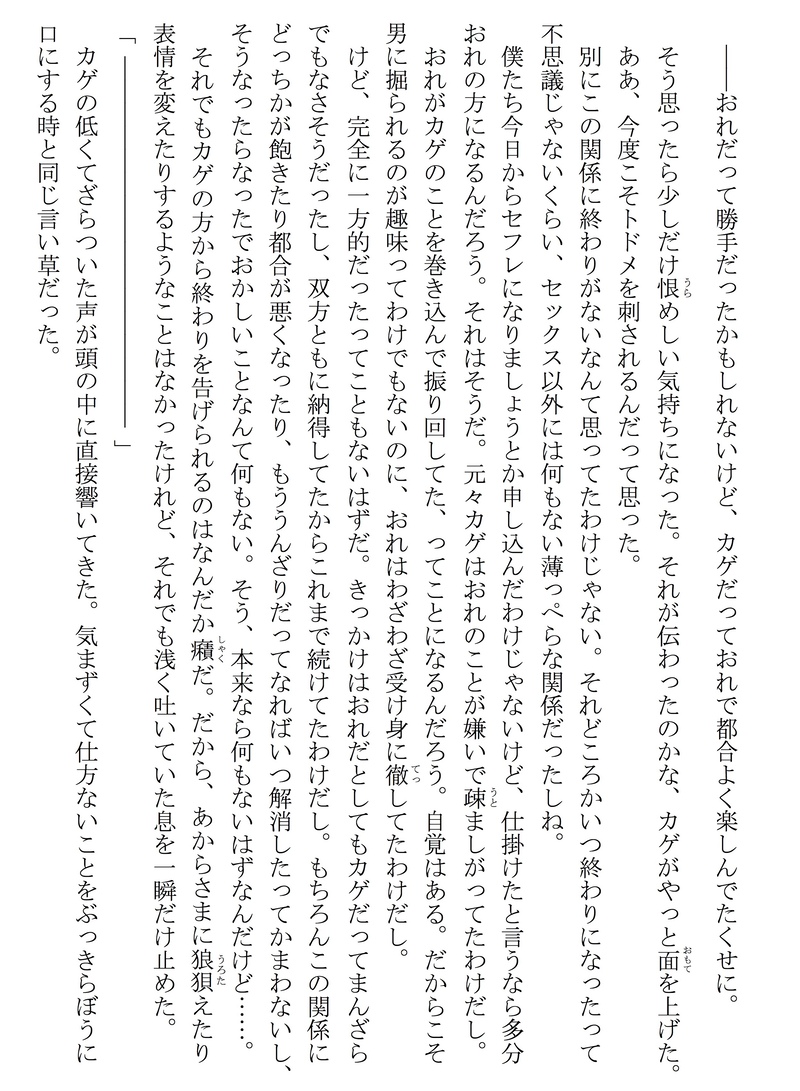 ――おれだって勝手だったかもしれないけど、カゲだっておれで都合よく楽しんでたくせに。
そう思ったら少しだけ恨めしい気持ちになった。それが伝わったのかな、カゲがやっと面を上げた。
ああ、今度こそトドメを刺されるんだって思った。
別にこの関係に終わりがないなんて思ってたわけじゃない。それどころかいつ終わりになったって
不思議じゃないくらい、セックス以外には何もない薄っぺらな関係だったしね。
僕たち今日からセフレになりましょうとか申し込んだわけじゃないけど、仕掛けたと言うなら多分
おれの方になるんだろう。それはそうだ。元々カゲはおれのことが嫌いで疎ましがってたわけだし。
おれがカゲのことを巻き込んで振り回してた、ってことになるんだろう。自覚はある。だからこそ
男に掘られるのが趣味ってわけでもないのに、おれはわざわざ受け身に徹してたわけだし。
けど、完全に一方的だったってこともないはずだ。きっかけはおれだとしてもカゲだってまんざら
でもなさそうだったし、双方ともに納得してたからこれまで続けてたわけだし。もちろんこの関係に
どっちかが飽きたり都合が悪くなったり、もううんざりだってなればいつ解消したってかまわないし、
そうなったらなったでおかしいことなんて何もない。そう、本来なら何もないはずなんだけど……。
それでもカゲの方から終わりを告げられるのはなんだか癪だ。だから、あからさまに狼狽えたり
表情を変えたりするようなことはなかったけれど、それでも浅く吐いていた息を一瞬だけ止めた。
「――――――――――」
カゲの低くてざらついた声が頭の中に直接響いてきた。気まずくて仕方ないことをぶっきらぼうに
口にする時と同じ言い草だった。